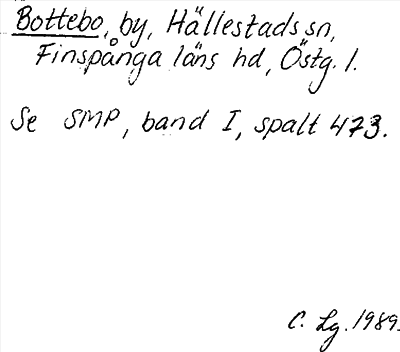 Bottebo, by, Hällestads sn,
Finspånga läns hd, Östg. l.
Se SMP, band I, spalt 473.
C. Lg. 1989.